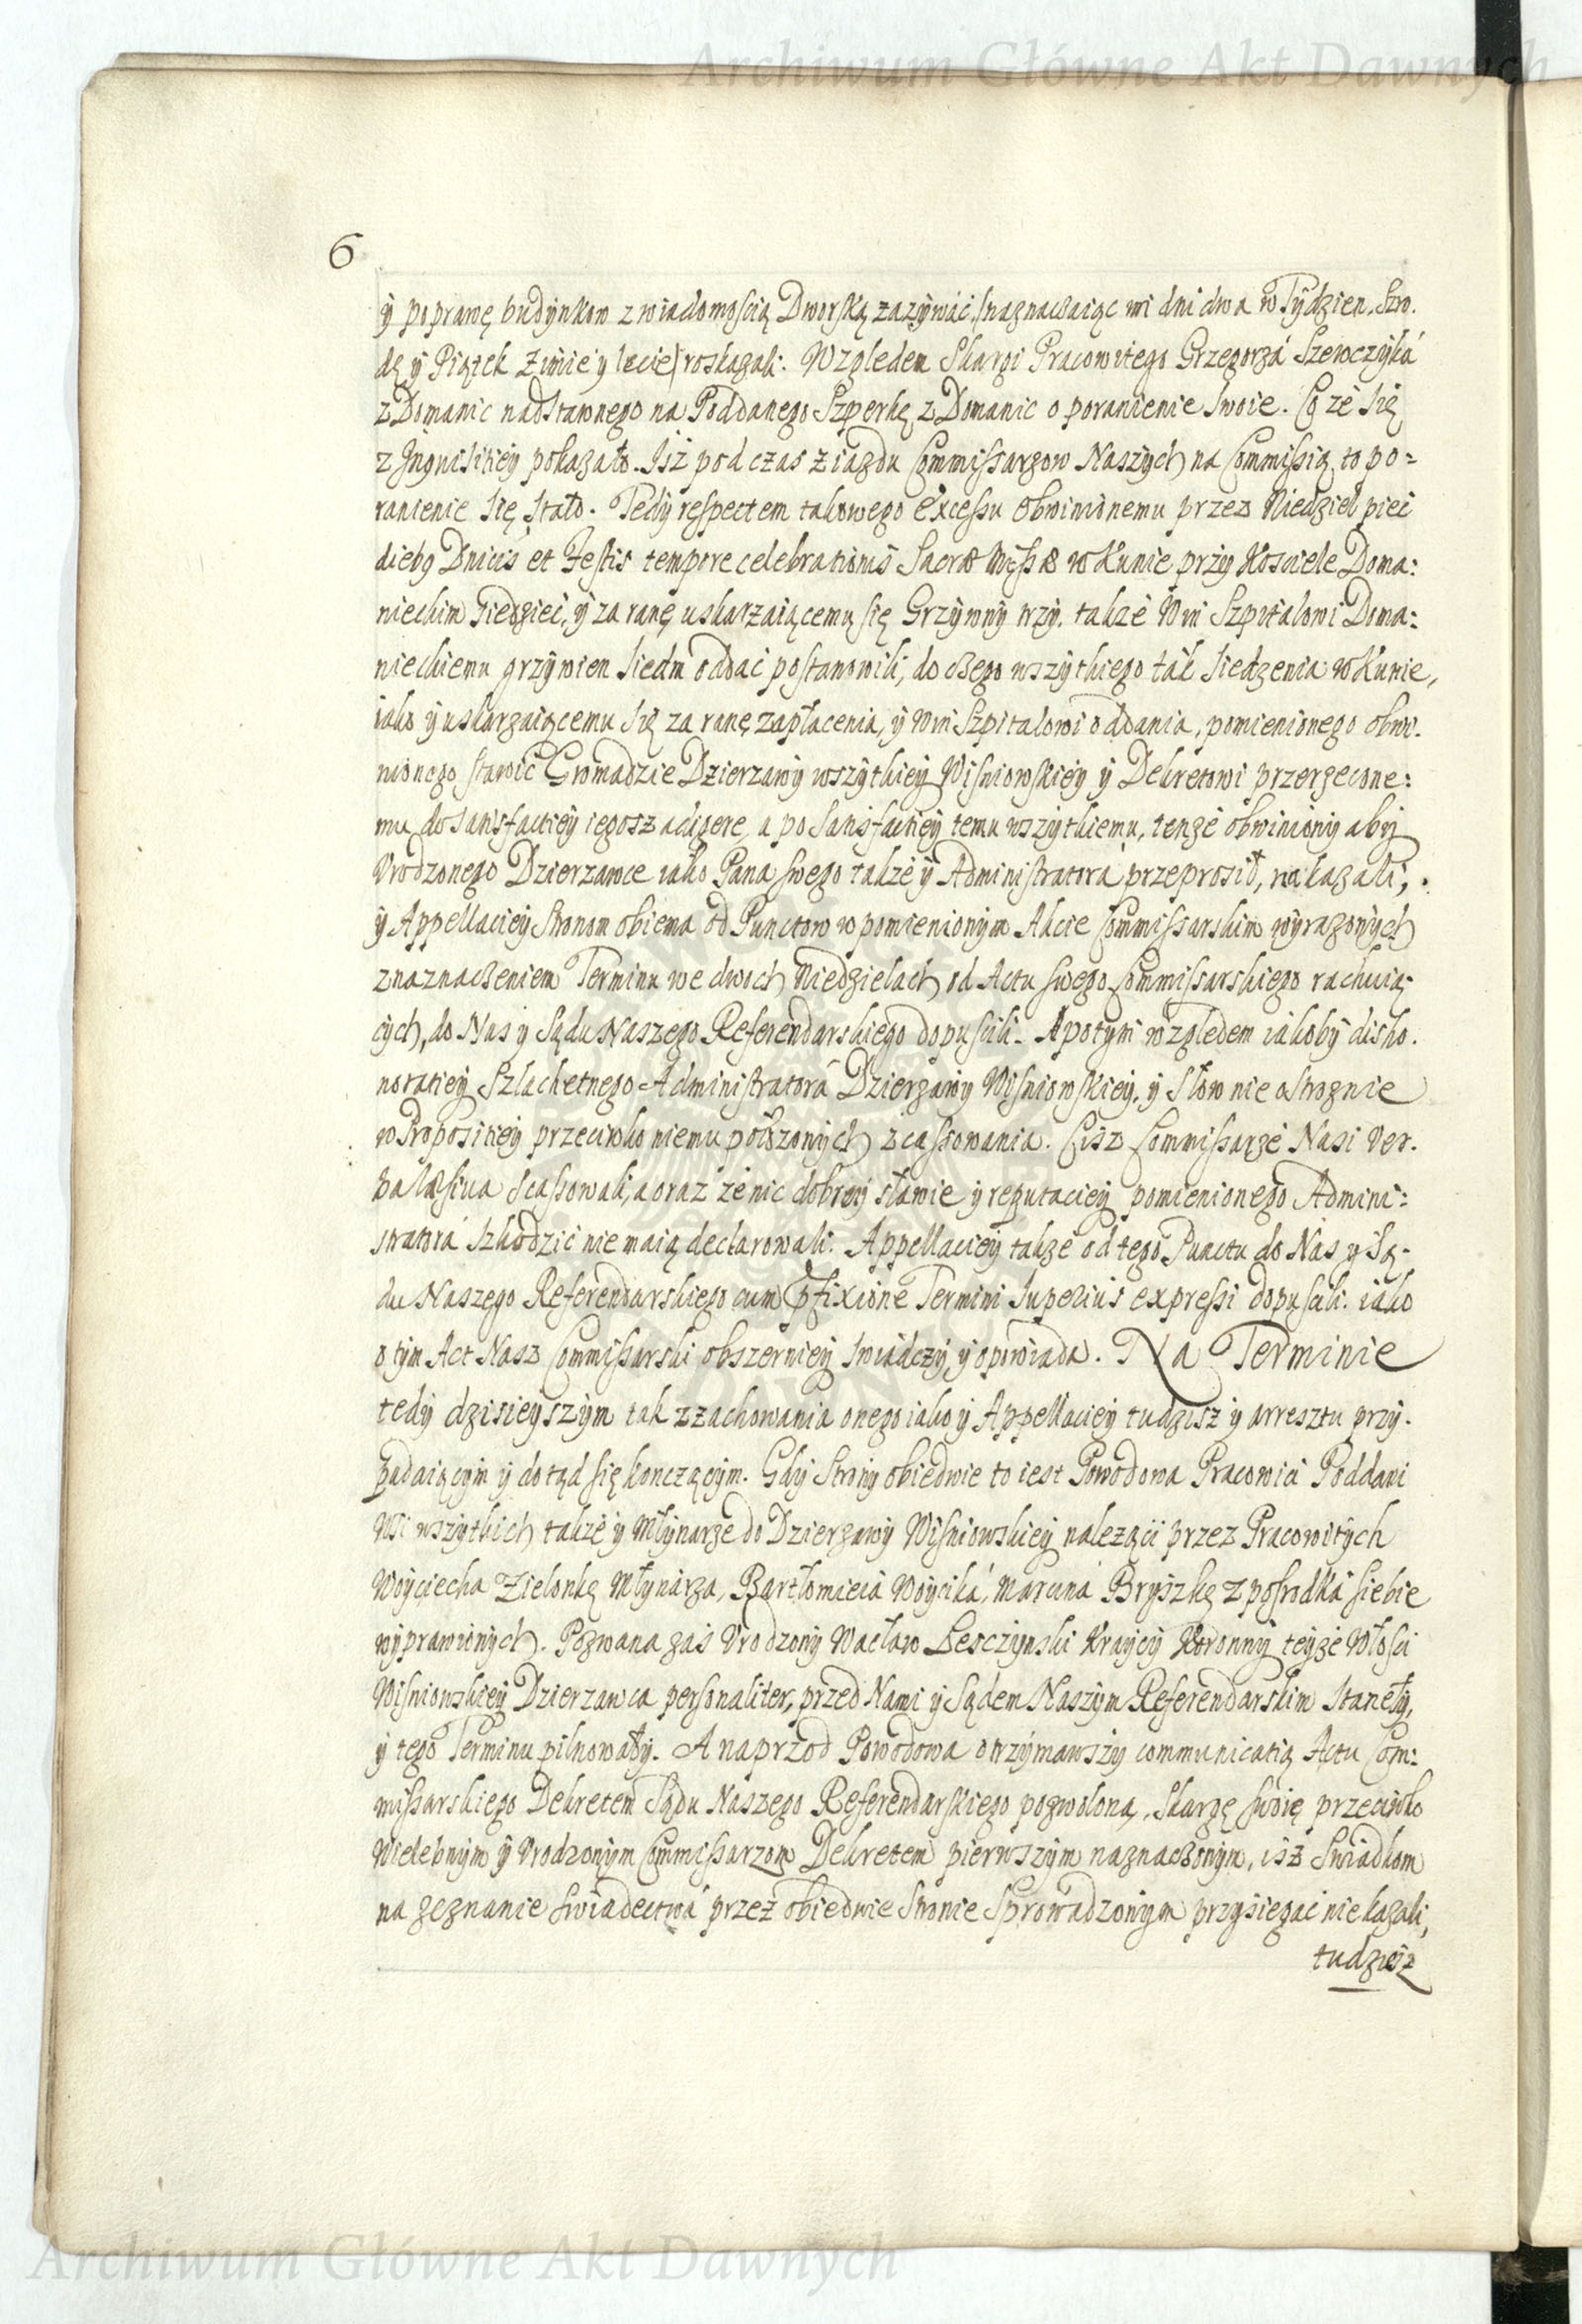 Archiwum Główne Akt Dawnych
6
ÿ poprawę budÿnkow z wiadomoscią Dworską zazÿwać, (naznaczaiąc wi dni dwa w Tÿdzien, Szro.
dę ÿ Piątek Zimie y lecie) roskazali. Względem Skargi Pracowitego Grzegorzá Szewczÿká
z Domanic nadstawnego na Poddanego Szperkę z Domanic o poranienie swoie. Co że się
z Inquisitiey pokazało. Isz podczas ziazdu Commissarzow Naszÿch na Commissią to po=
ranienie się stało. Tedÿ respectem takowego excessu obwinionemu przez Niedziel pieć
diebꝯ Dnicis et Festis tempore celebrationis Sacræ Missæ w Kunie przÿ Kosciele Doma:
nieckim siedzieć, ÿ za ranę uskarzaiącemu się Grzÿwnÿ trzy, takze Wm Szpitalowi Doma:
nieckiemu grzywien siedm oddać postanowili, do czego wszÿtkiego tak siedzenia w Kunie,
iako ÿ uskarzaiącemu się za ranę zapłacenia, ÿ Wm Szpitalowi oddania, pomienionego obwi.
nionego stawić Gromadzie Dzierzawÿ wszÿtkieÿ Wisniowskieÿ ÿ Dekretowi przerzeczone:
mu, do satisfactieÿ iegosz adigere, a po satisfactieÿ temu wszÿtkiemu, tenże obwinionÿ abÿ
Vrodzonego Dzierzawce iako Pana swego takze ÿ Administratora przeprosił, nakazali,
ÿ Appellacieÿ Stronom obiema od Punctow w pomienionÿm Akcie Commissarskim wÿrazonÿch
z naznaczeniem Terminu we dwoch Niedzielach od Actu swego Commissarskiego rachuią-
cÿch, do Nas y Sądu Naszego Referendarskiego dopuscili. A potÿm względem iakobÿ disho.
noratieÿ Szlachetnego Administratorá Dzierzawÿ Wisniowskieÿ, ÿ Słow nie ostroznie
w Propositieÿ przeciwko niemu położonÿch zcassowania. Cisz Commissarze Nasi ver.
ba læsiua scassowali, a oraz że nic dobreÿ sławie ÿ reputacieÿ pomienionego Admini:
stratorá szkodzić nie maią declarowali. Appellacieÿ takze od tego Punctu do Nas ÿ Są-
du Naszego Referendarskiego cum p̃fixione Termini superius expressi dopuscili. iako
o tÿm Act Nasz Commissarski obszernieÿ swiadczÿ ÿ opowiada. Na Terminie
tedÿ dzisieÿszÿm tak z zachowania onego iako ÿ Appellacieÿ tudzisz ÿ arresztu przÿ.
padaiącÿm ÿ dotąd się konczącÿm. Gdÿ Stronÿ obiedwie to iest Powodowa Pracowici Poddani
Wsi wszÿtkich takze ÿ Młÿnarze do Dzierzawÿ Wisniowskieÿ nalezący przez Pracowitÿch
Woÿciecha Zielonkę Młynárza, Bartłomieiá Woÿciká, Marcina Brÿszkę z posrodká siebie
wÿprawionÿch. Pozwana zas Vrodzonÿ Wacław Lesczÿnski Kraÿcÿ Koronnÿ teÿże Włosci
Wisniowskieÿ Dzierzawca personaliter, przed Nami ÿ Sądem Naszÿm Referendarskim stanełÿ,
ÿ tego Terminu pilnowałÿ. A naprzod Powodowa otrzÿmawszÿ communicatią Actu Com:
missarskiego Dekretem Sądu Naszego Referendarskiego pozwoloną, Skargę swoię przeciwko
Wielebnÿm ÿ Vrodzonÿm Commissarzom Dekretem pierwszÿm naznaczonÿm, isz Swiadkom
na zeznanie swiadectwá przez obiedwie Stronie sprowadzonÿm przysiegać nie kazali,
tudziesz
Archiwum Główne Akt Dawnych